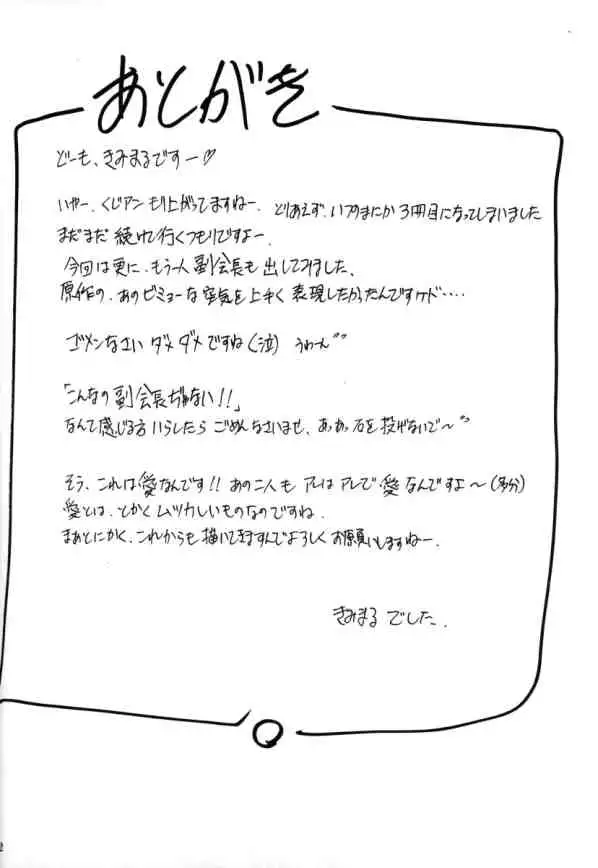 あとがき
どーも、きみまるですー♡
いやー、くじアンもり上がってますねー。とりあえず、いつのまにか3冊目になってしまいました
まだまだ続けて行くつもりですよー。
今回は更に、もう一人副会長も出してみました。
原作の、あのビミョーな空気を上手く表現したかったんですケド‥‥
ゴメンなさい ダメダメですね(泣) うわーん゛
「こんなの副会長ぢゃない!!」
なんて感じる方いらしたらごめんなさいませ、あぁぁ、石を投げないで〜゛
そう、これは愛なんです!! あの二人もアレはアレで愛なんですよ〜(多分)
愛とは、とかくムツカしいものなのですね。
まぁとにかく、これからも描いてきますんでよろしくお願いしますねー。
きみまるでした。
2